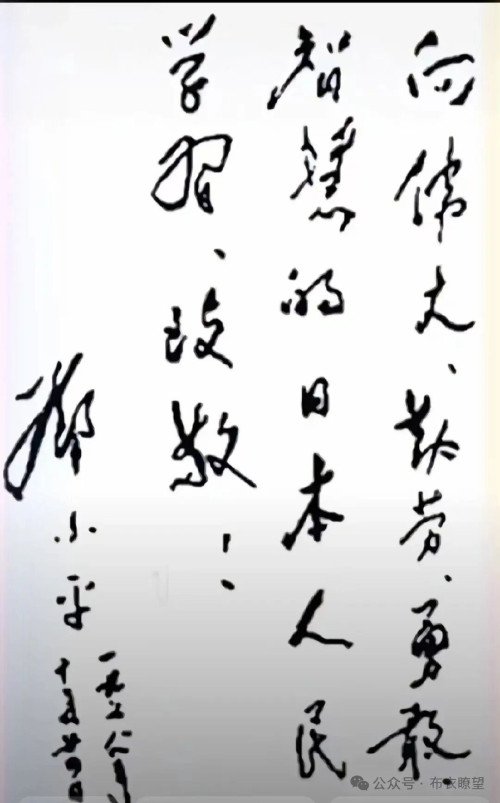 向伟大、勤劳、勇敢、
智慧的日本人民
学习、致敬！
邓小平
一九七八年
十月廿四日
公众号·布衣瞭望